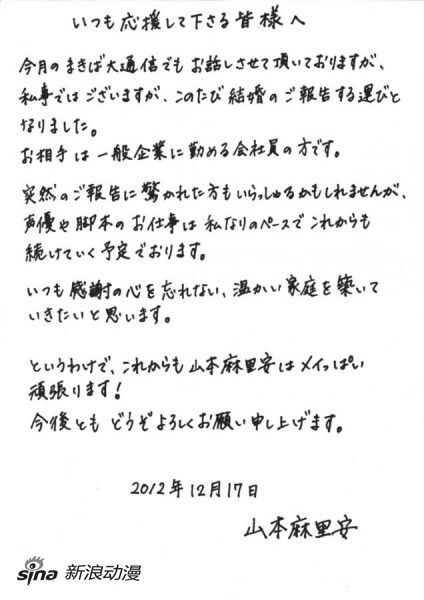 いつも応援して下さる皆様へ
今月のまきば大通信でもお話しさせて頂いておりますが、
私事ではございますが、このたび結婚のご報告する運びと
なりました。
お相手は一般企業に勤める会社員の方です。
突然のご報告に驚かれた方もいらっしゃるかもしれませんが、
声優や脚本のお仕事は私なりのペースでこれからも
続けていく予定でおります。
いつも感謝の心を忘れない、温かい家庭を築いて
いきたいと思います。
というわけで、これからも山本麻里安はメイっぱい
頑張ります!
今後ともどうぞよろしくお願い申し上げます。
2012年12月17日
山本麻里安
sina 新浪动漫